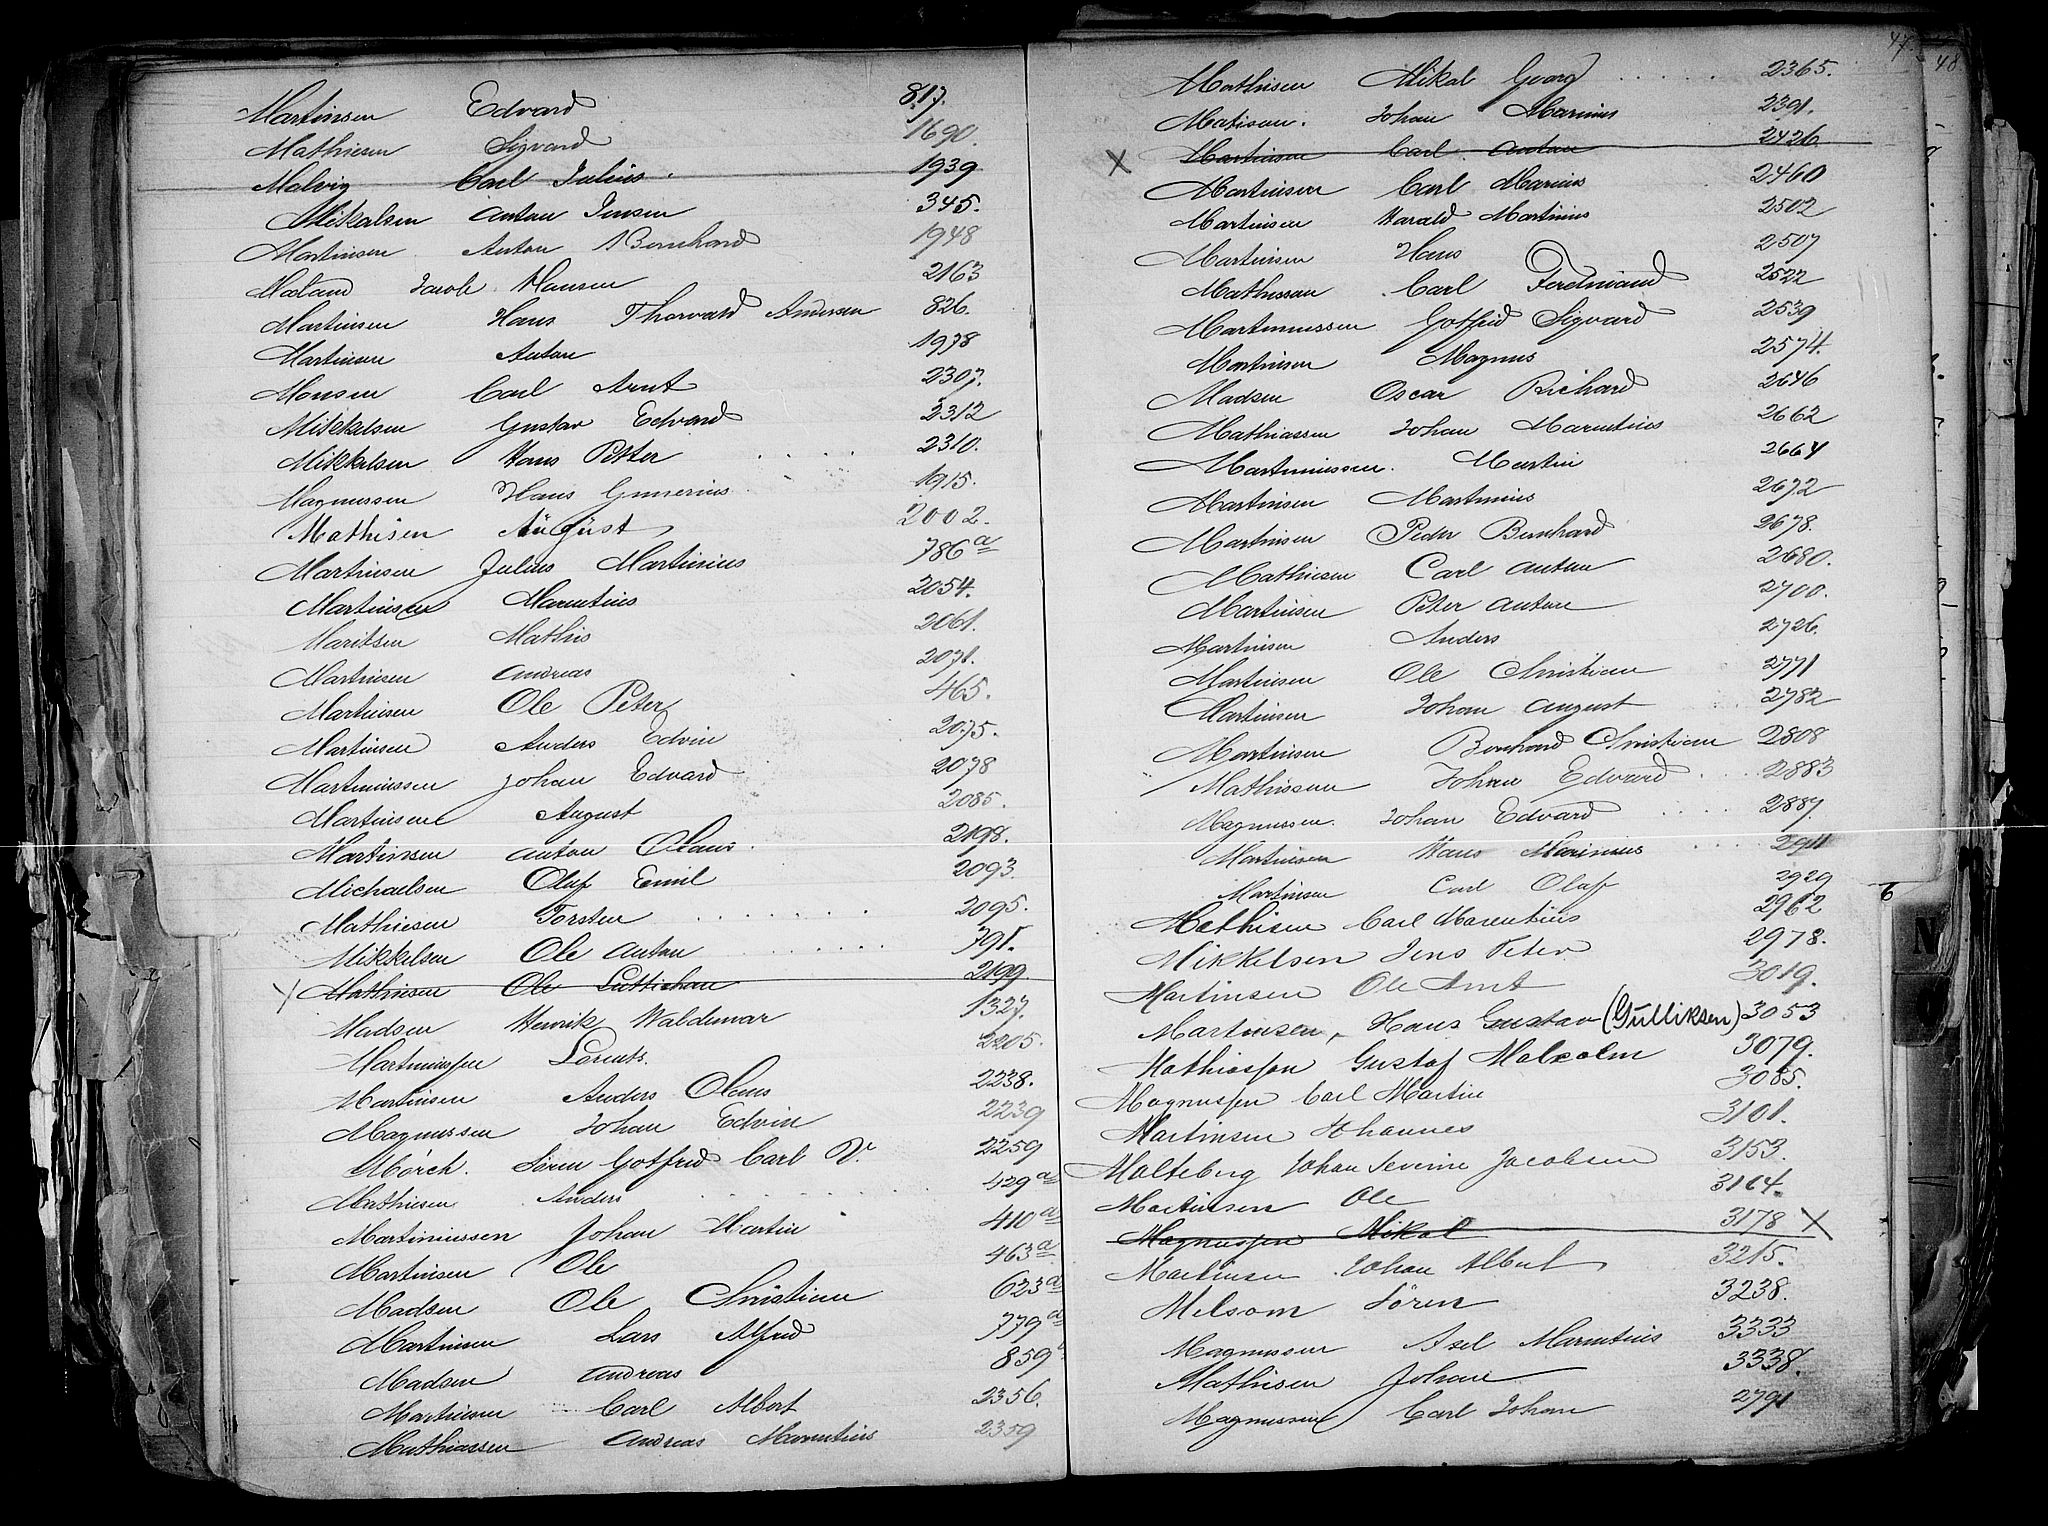 Martinsen Edvard 817.
Mathiesen Sigvard 1690.
Malvig Carl Julius. 1939
Mikalsen Anton Jensen 345.
Martinsen Anton Bernhard 1948
Maland Jacob Hansen 2163
Martinsen Hans Thorvald Andersen 826.
Martinsen Anton 1978
Monsen Carl Arnt 2307.
Mikkelsen Gustav Edvard 2312
Mikkelsen Hans Petter 2310.
Magnussen Hans Gunerius 1915.
Mathisen August 2002.
Martinsen Julius Martinius 786 a
Martinsen Marentius 2054.
Maritsen Mathis 2061.
Martinsen Andreas 2071.
Martinsen Ole Peter 465.
Martinsen Anders Edvin 2075.
Martinussen Johan Edvard 2078
Martinsen August 2085.
Martinsen Anton Olaus. 2198.
Michaelsen Olaf Emil 2093.
Mathiesen Torsten 2095.
Mikkelsen Ole Anton 791.
X Mathiesen Ole Lüttichau 2199.
Madsen Henrik Waldemar 1327.
Martinussen Lorents. 2205.
Martinsen Anders Olaus 2238.
Magnussen Johan Edvin 2239
Mörch. Sören Gotfred Carl V. 2259
Mathiesen Anders 429 a
Martiniussen Johan Martin 410 a
Martinsen Ole 463 a
Madsen Ole Christian 623 a
Martinsen Lars Alfred 779 a
Madsen Andreas 859
Martinsen Carl Albert 2356.
Mathiassen Andreas Marentius 2359
47. 48
Mathisen Mikal Georg 2365.
Matisen. Johan Marinus 2391.
X Martinsen Carl Anton 2426
Martinsen Carl Marius 2460
Martinsen Harald Martinius 2502
Martinsen Hans 2507
Mathissen Carl Ferdinand 2522
Martinussen Gotfred Sigvard 2539
Martinsen Magnus 2574.
Madsen Oscar Richard 2646
Mathiassen Johan Marentius 2662
Martinussen. Martin 2664
Martinsen Martinius 2672
Martinsen Peder Bernhard 2678.
Mathiesen Carl Anton 2680.
Martinsen Peter Anton 2700.
Martinsen Anders 2726.
Martinsen Ole Christian 2771
Martinsen Johan August 2782
Martinsen Bernhard Christian 2808
Mathissen Johan Edvard 2883
Magnussen. Johan Edvard 2887.
Martinsen Hans Marinius 2911
Martinsen Carl Olaf 2929
Mathisen Carl Marentius 2962
Mikkelsen Jens Peter 2978.
Martinsen Ole Arnt 3019.
Martinsen, Hans Gustav (Gulliksen) 3053
Mathiassen Gustaf Malcolm 3079.
Magnussen Carl Martin 3085.
Martinsen Johannes 3101.
Malteberg Johan Severin Jacobsen 3153.
Martinsen Ole 3164.
Magnussen Mikal 3178 X
Martinsen Johan Albert 3215.
Melsom Sören 3238.
Magnussen Axel Marentius 3333
Mathisen Johan 3338.
Magnussen Carl Johan 2791